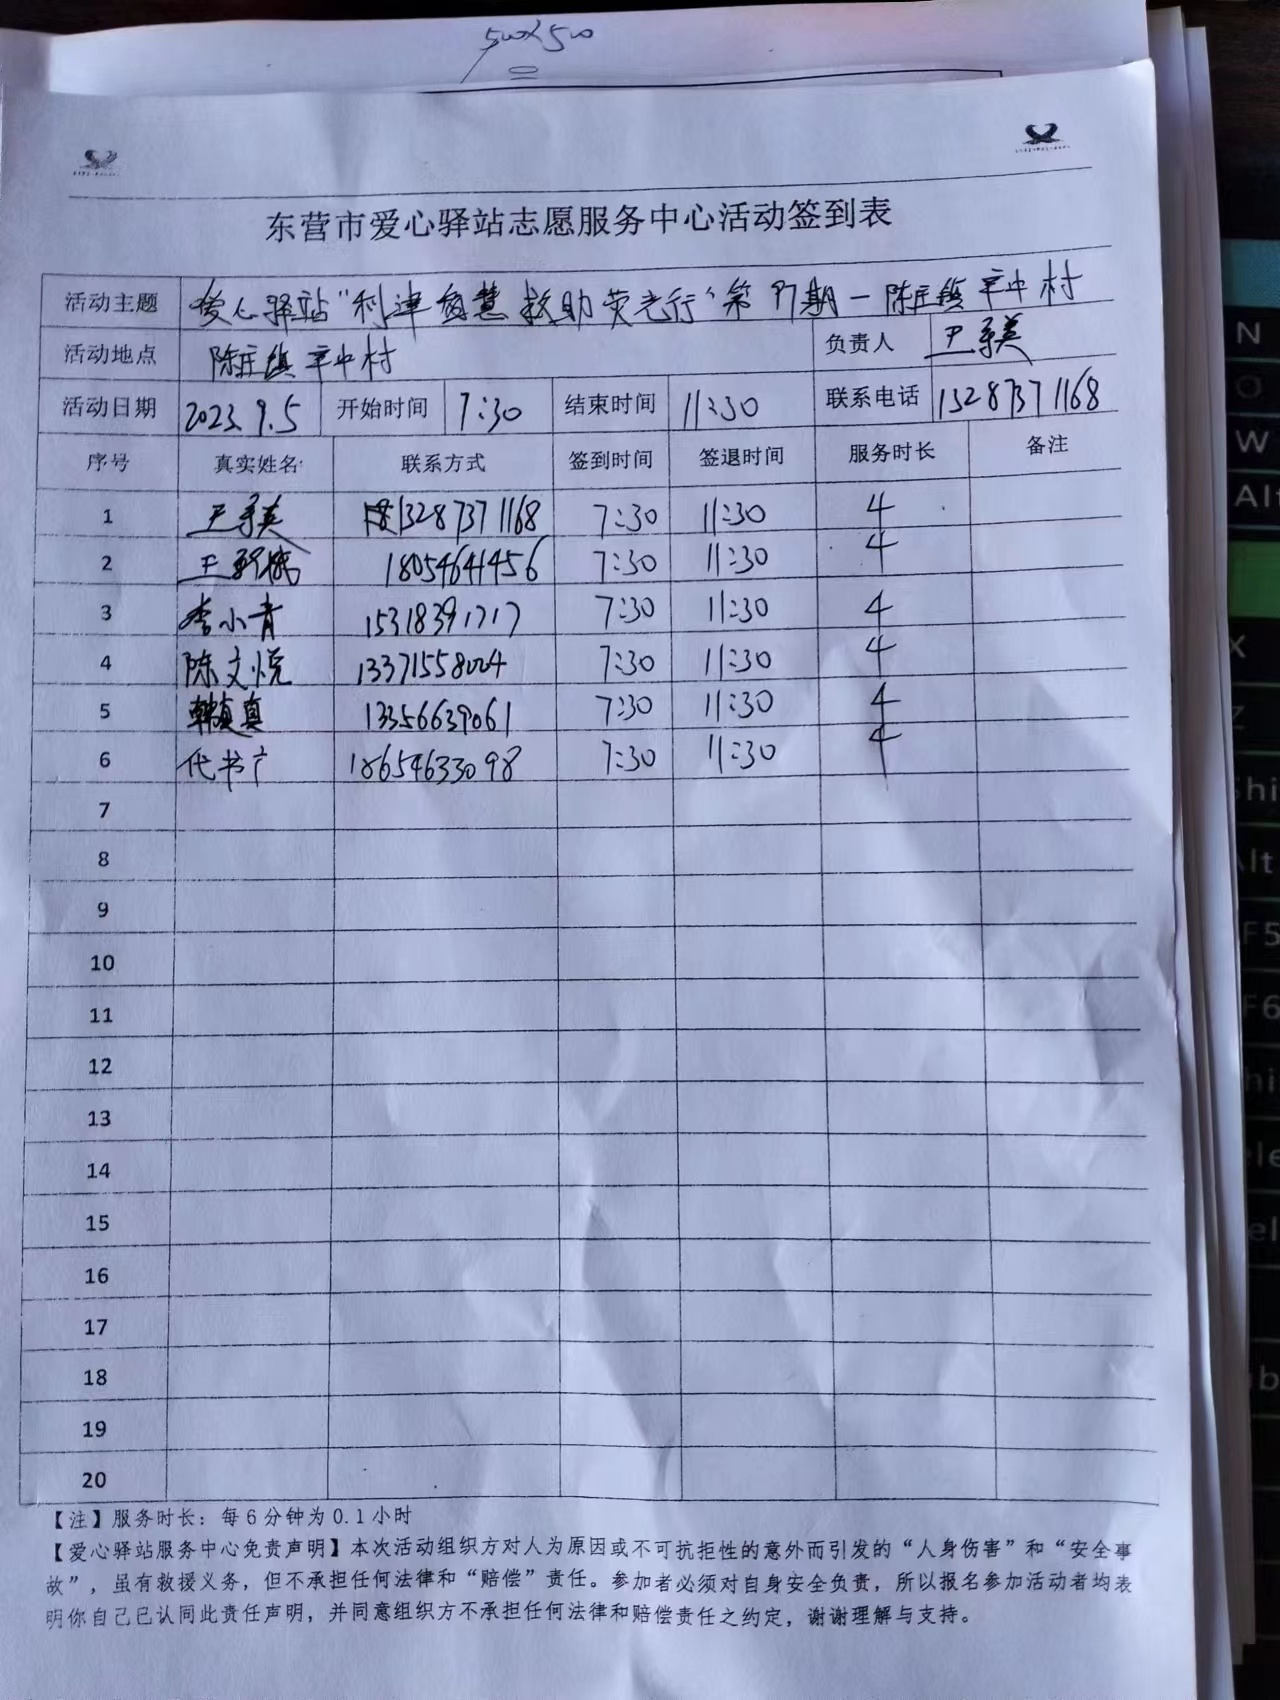 500×500
东营市爱心驿站志愿服务中心活动签到表
活动主题 爱心驿站"利津智慧救助荧光行"第97期—陈庄镇辛中村
活动地点 陈庄镇辛中村 负责人 尹承英
活动日期 2023.9.5 开始时间 7:30 结束时间 11:30 联系电话 13287371168
序号 真实姓名 联系方式 签到时间 签退时间 服务时长 备注
1 尹承英 13287371168 7:30 11:30 4
2 王 18054641456 7:30 11:30 4
3 李小青 15318391717 7:30 11:30 4
4 陈文悦 13371558004 7:30 11:30 4
5 韩真真 13356639061 7:30 11:30 4
6 代书广 18654633098 7:30 11:30 4
7
8
9
10
11
12
13
14
15
16
17
18
19
20
【注】服务时长：每6分钟为0.1小时
【爱心驿站服务中心免责声明】本次活动组织方对人为原因或不可抗拒性的意外而引发的“人身伤害”和“安全事
故”，虽有救援义务，但不承担任何法律和“赔偿”责任。参加者必须对自身安全负责，所以报名参加活动者均表
明你自己已认同此责任声明，并同意组织方不承担任何法律和赔偿责任之约定，谢谢理解与支持。
N
O
W
Alt
X
Z
Shi
Alt
F5
F6